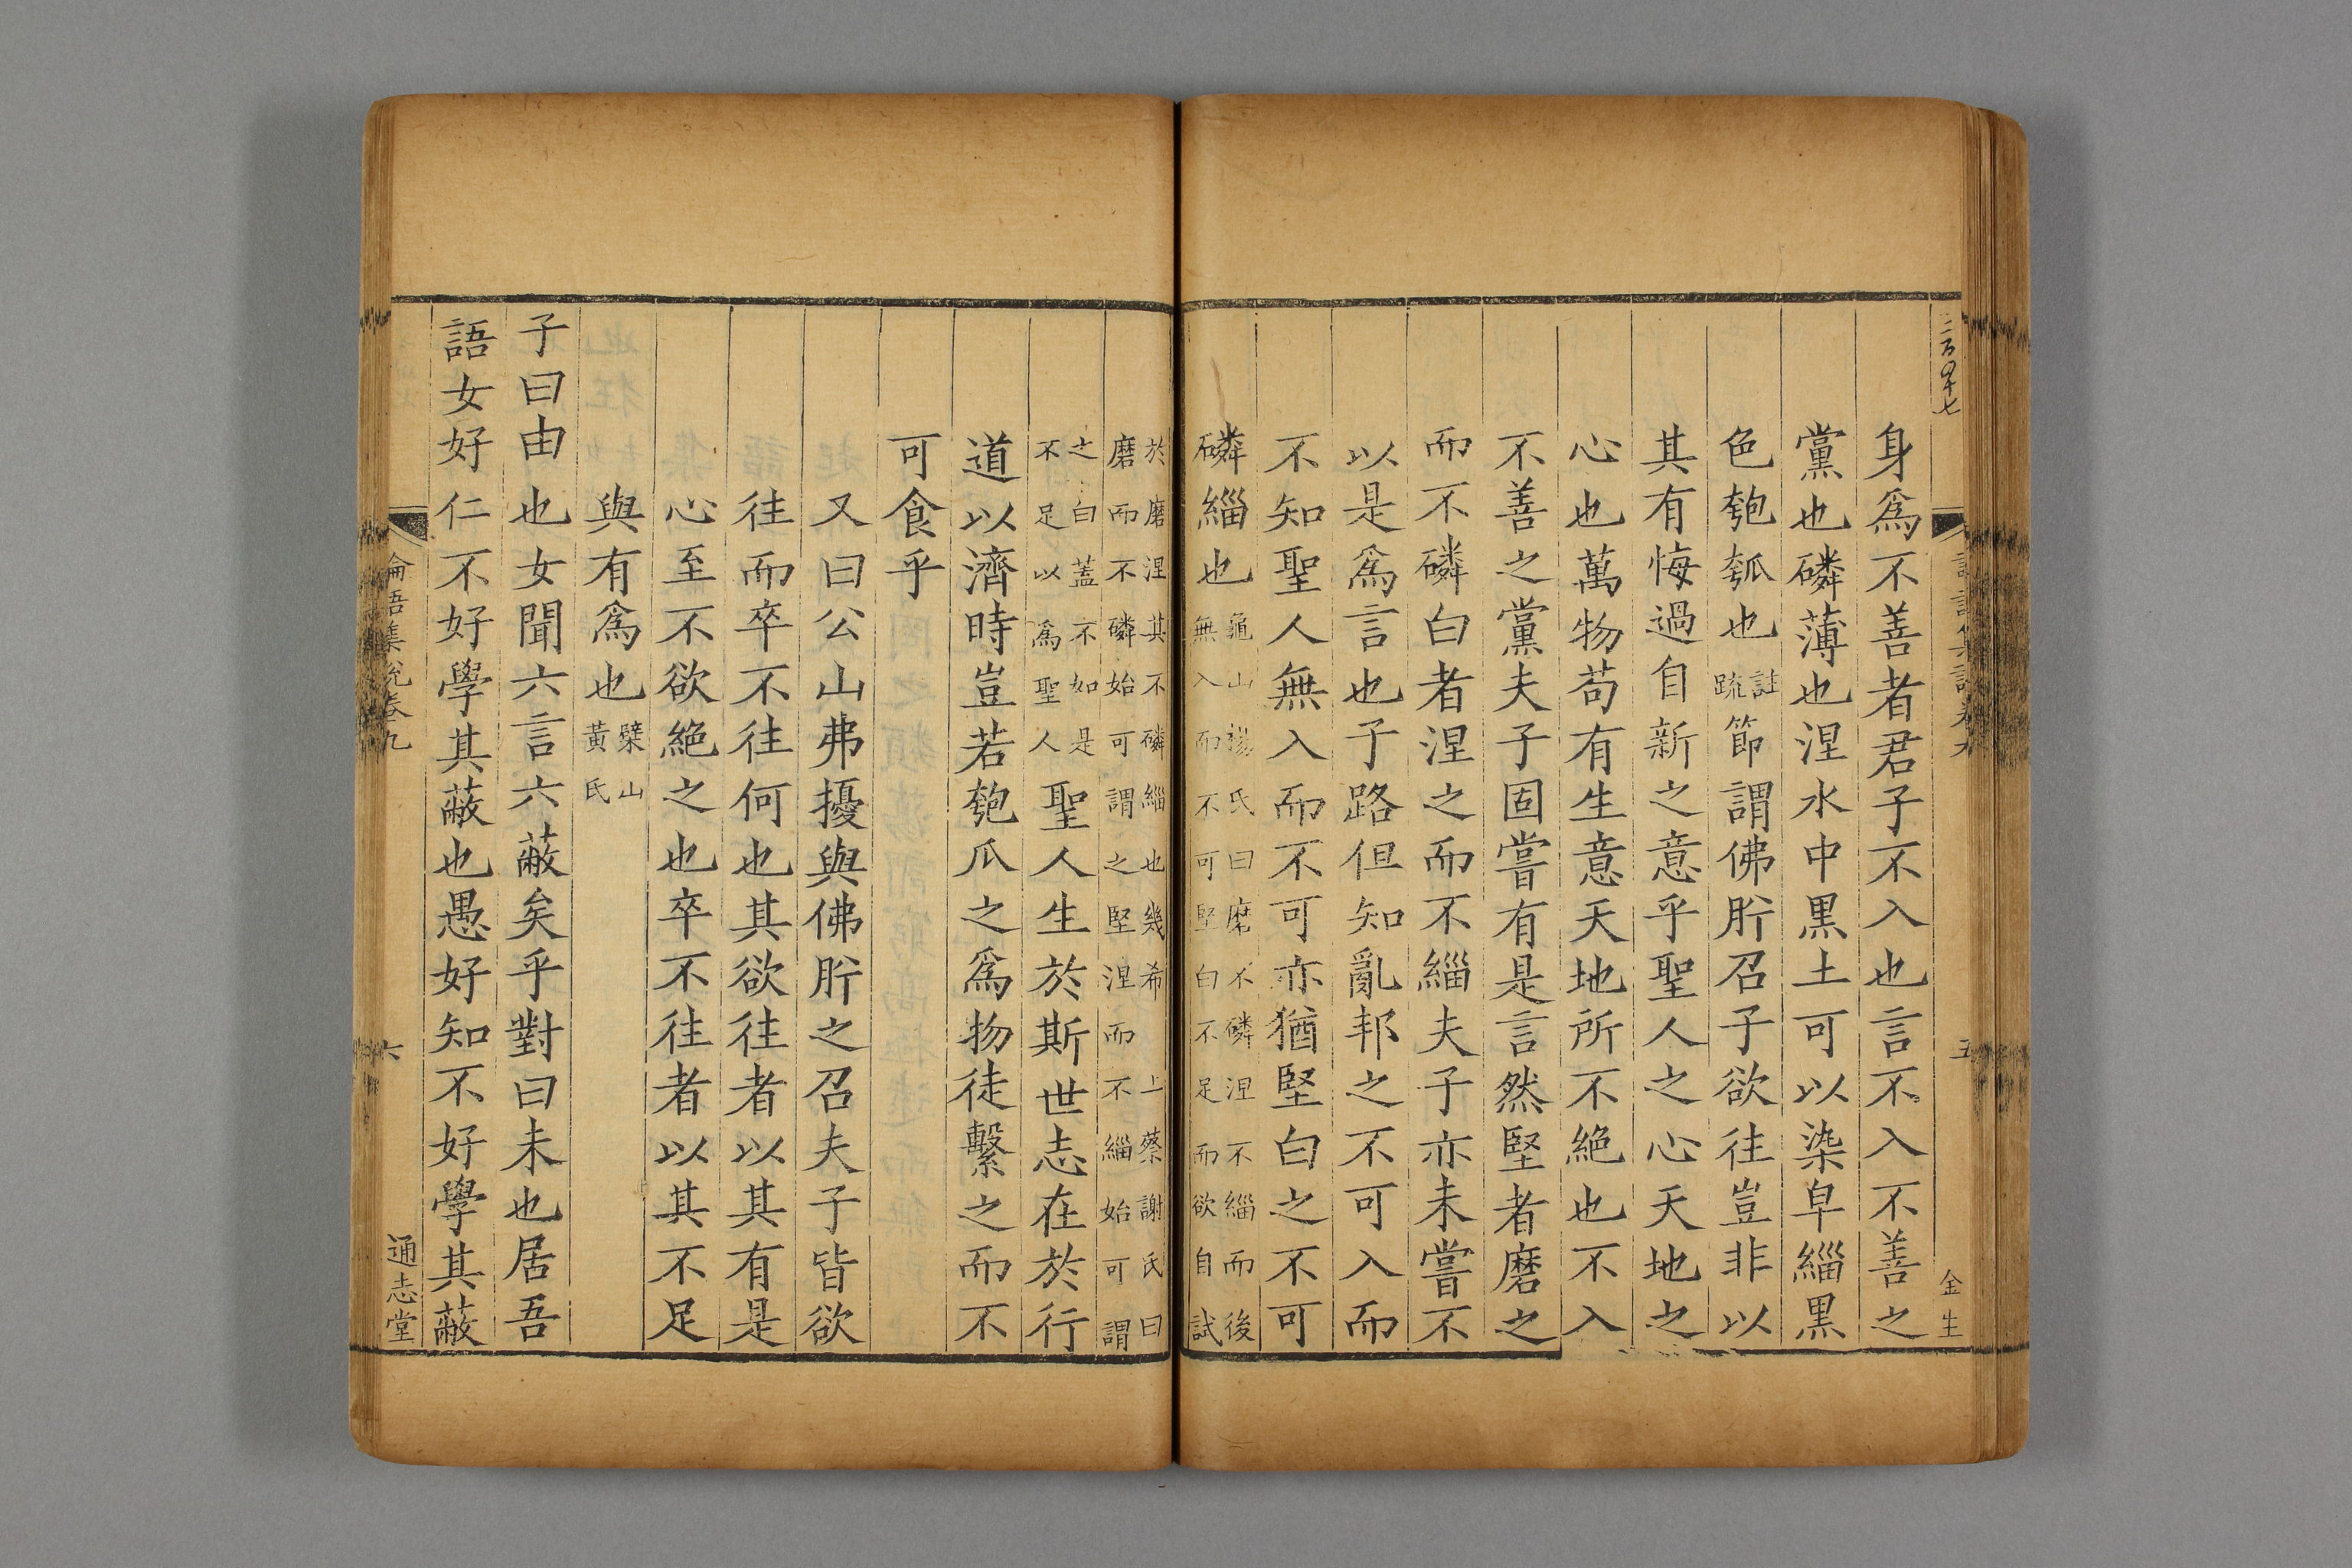 身爲不善者君子不入也言不入不善之
黨也磷薄也涅水中黑土可以染皁緇黑
色匏瓠也註疏節謂佛肸召子欲往豈非以
其有悔過自新之意乎聖人之心天地之
心也萬物苟有生意天地所不絶也不入
不善之黨夫子固嘗有是言然堅者磨之
而不磷白者涅之而不緇夫子亦未嘗不
以是爲言也子路但知亂邦之不可入而
不知聖人無入而不可亦猶堅白之不可
磷緇也龜山楊氏曰磨不磷涅不緇而後無入而不可堅白不足而欲自試
於磨涅其不磷緇也幾希 上蔡謝氏曰磨而不磷始可謂之堅涅而不緇始可謂
之白蓋不如是不足以爲聖人聖人生於斯世志在於行
道以濟時豈若匏瓜之爲物徒繫之而不
可食乎
又曰公山弗擾與佛肸之召夫子皆欲
往而卒不往何也其欲往者以其有是
心至不欲絶之也卒不往者以其不足
與有爲也檗山黃氏
子曰由也女聞六言六蔽矣乎對曰未也居吾
語女好仁不好學其蔽也愚好知不好學其蔽
論語集說卷九
六
通志堂
五
金生